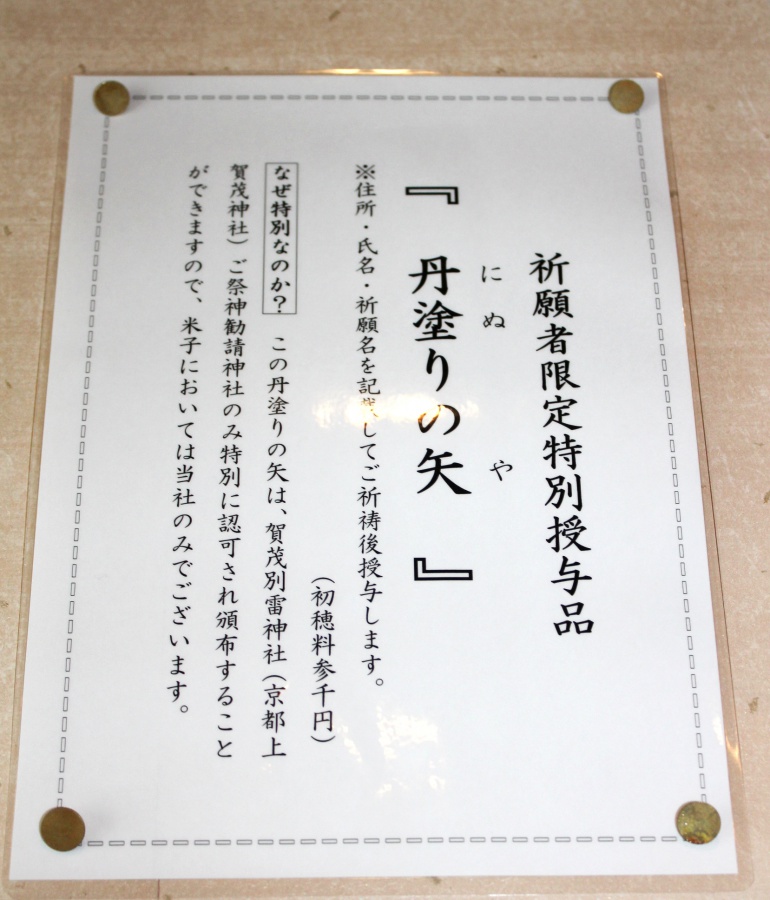 祈願者限定特別授与品
にぬ や
『 丹塗りの矢 』
※住所・氏名・祈願名を記載してご祈祷後授与します。
(初穂料参千円)
なぜ特別なのか? この丹塗りの矢は、賀茂別雷神社(京都上
賀茂神社)ご祭神勧請神社のみ特別に認可され頒布すること
ができますので、米子においては当社のみでございます。